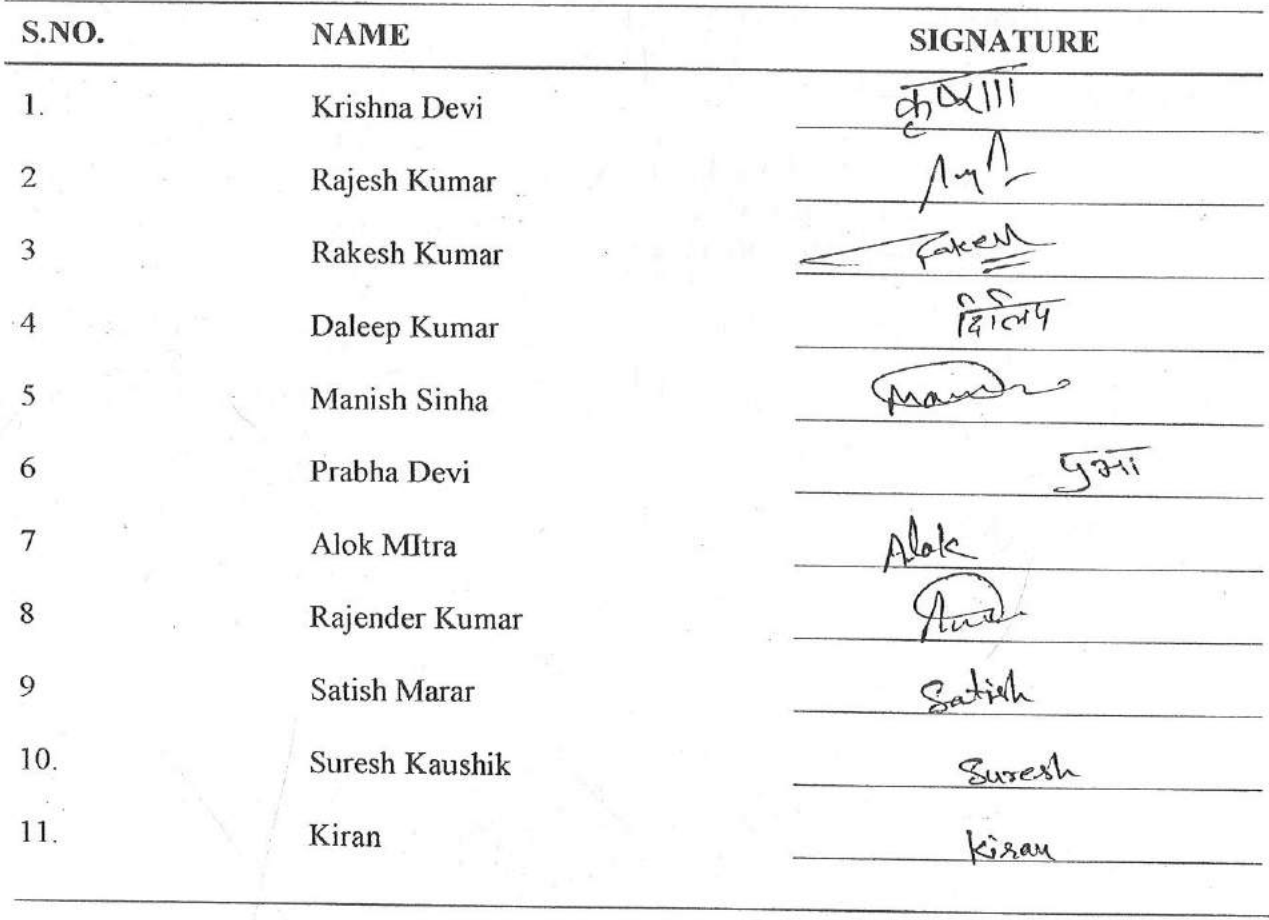 S.NO. NAME SIGNATURE
1. Krishna Devi कृष्णा
2 Rajesh Kumar
3 Rakesh Kumar Rakesh
4 Daleep Kumar दिलिप
5 Manish Sinha
6 Prabha Devi प्रभा
7 Alok MItra Alok
8 Rajender Kumar
9 Satish Marar Satish
10. Suresh Kaushik Suresh
11. Kiran Kiran